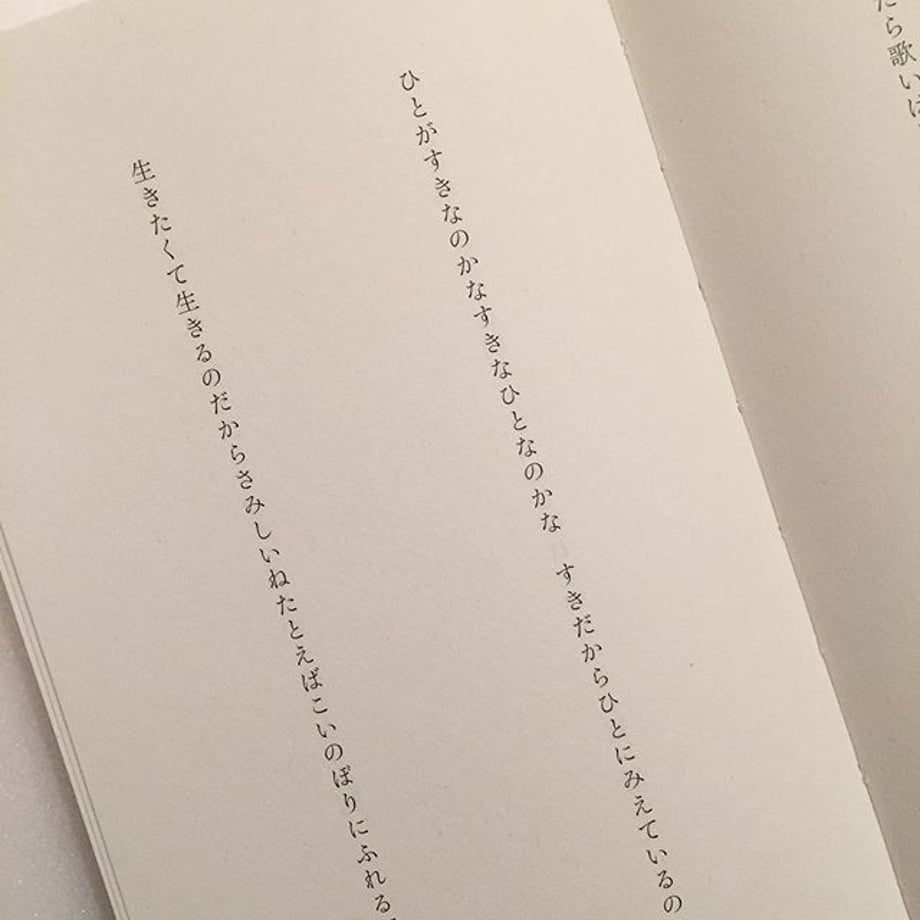 たら歌い
ひとがすきなのかなすきなひとなのかな　すきだからひとにみえているの
生きたくて生きるのだからさみしいねたとえばこいのぼりにふれる